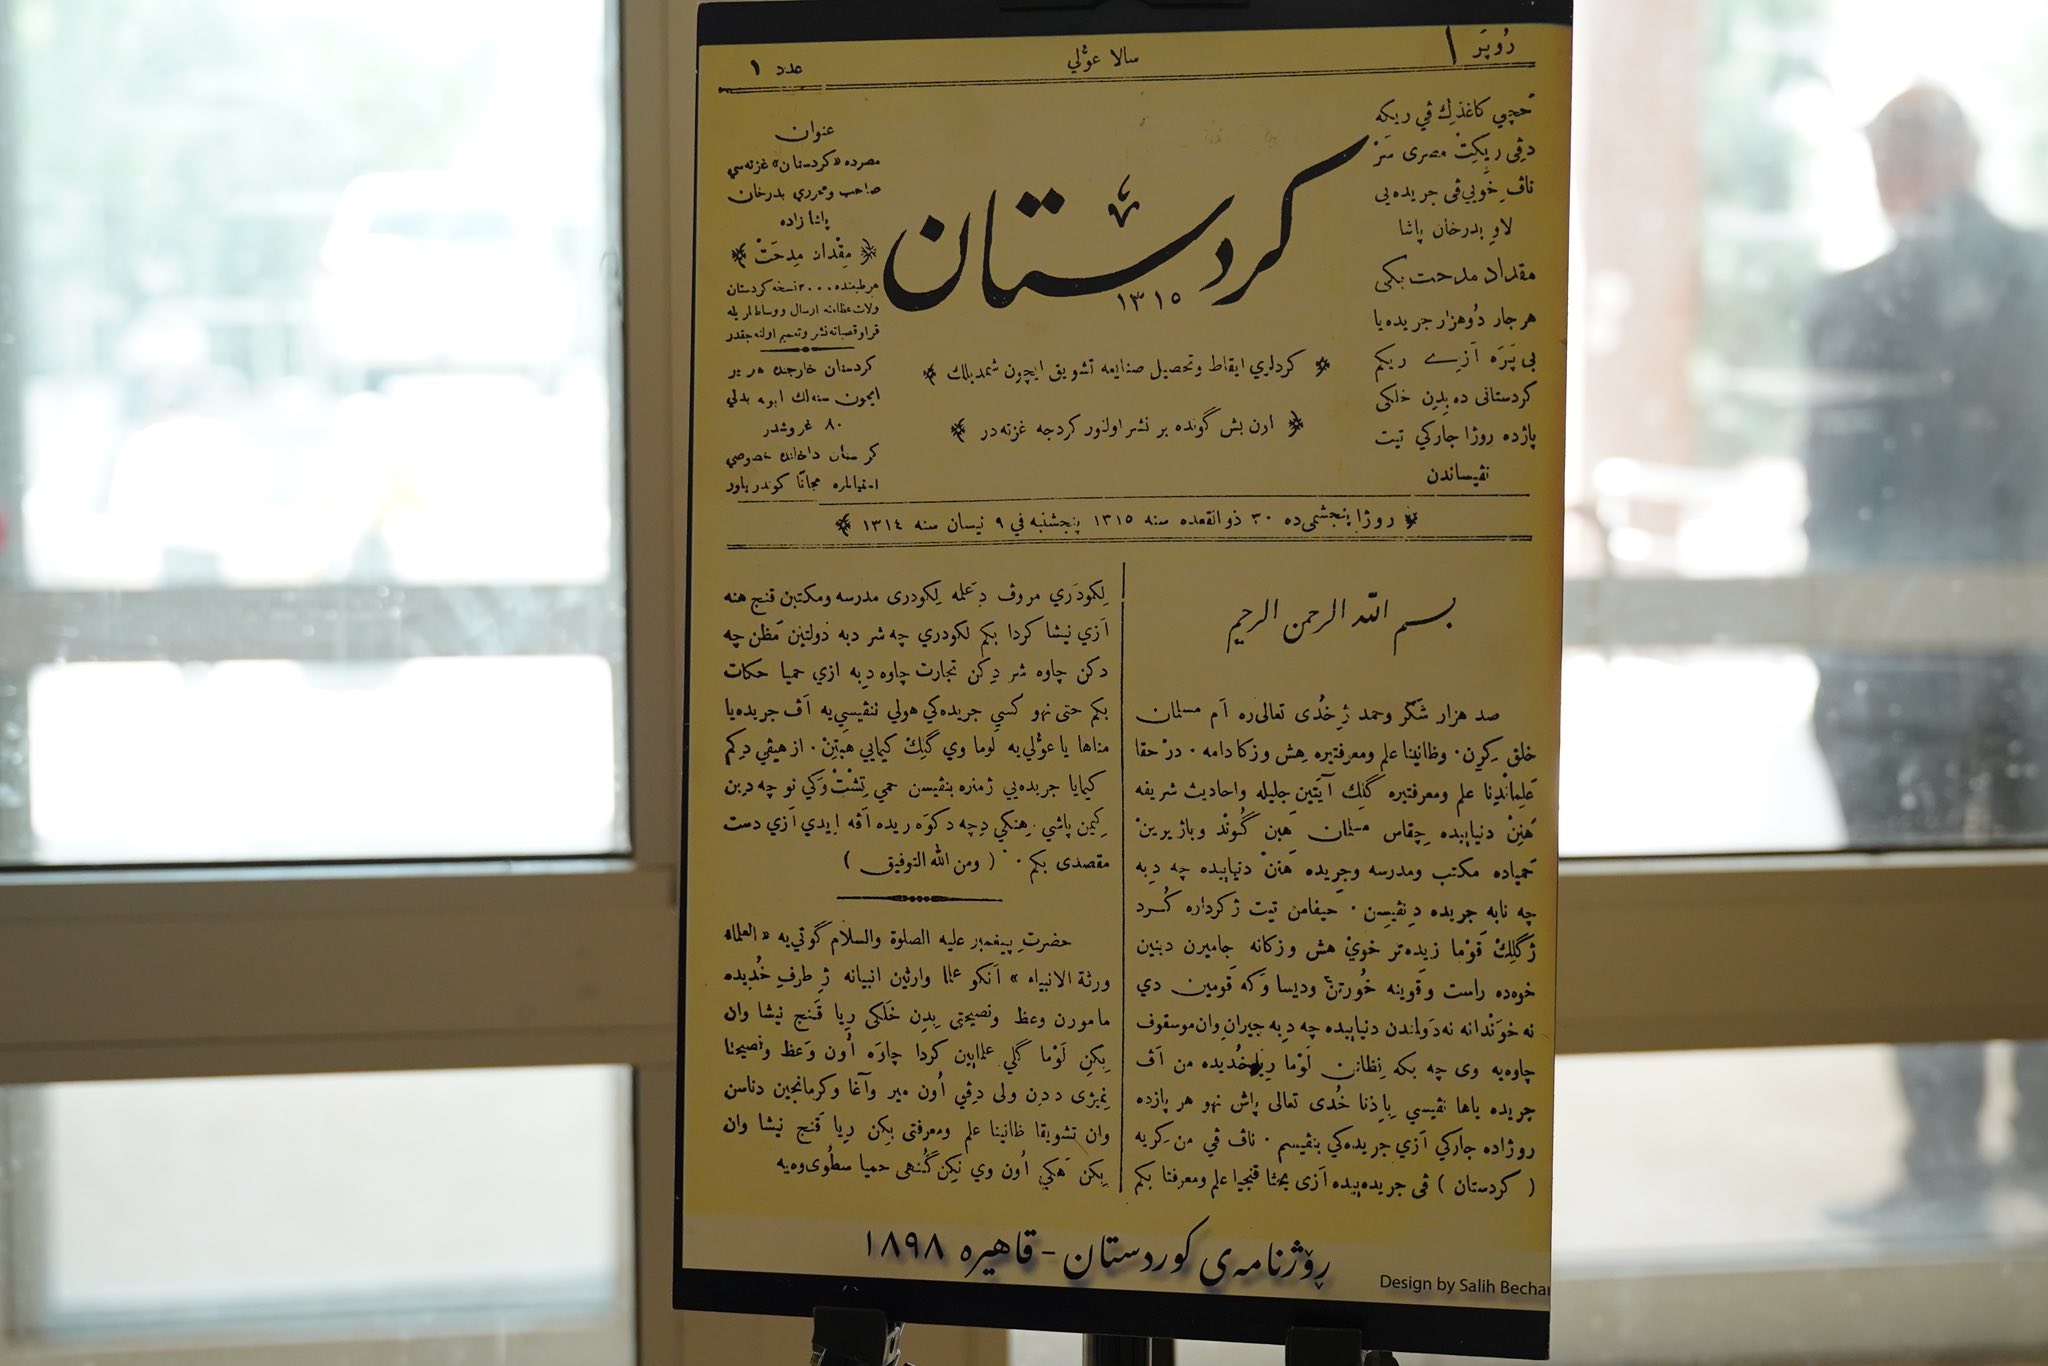 رُوپَر ١
سالا عوّلي
عدد ١
حچوي كاغذك ڤي ريكه
دڤى ريكِتْ مصرى سَرْ
ناڤ خويي ڤى جريده يى
لاوِ بدرخان پاشا
مقداد مدحت بكى
هرجار دُوهزار جريده يا
بى پَرَه آزِے ريكم
كردستانى ده بِدِن خلكى
پاژده روژا جاركي تيت
نڤيساندن
كردستان
١٣١٥
كردلري ايقاظ وتحصيل صنايعه تشويق ايچون شمديلك
اون بش گونده بر نشر اولنور كردجه غزته در
عنوان
مصرده «كردستان» غزته سي
صاحب ومحرري بدرخان
پاشا زاده
مِقْداد مِدحَتْ
هر طبعنده ٢٠٠٠ نسخه كردستان
ولات عظامنه ارسال و وساطتلريله
قرا وقصباته نشر وتعميم اولنه جقدر
كردستان خارجنده هر ير
ايچون سنه لك ابونه بدلي
٨٠ غروشدر
كردستان داخلنده خصوصي
مجاناً كوندريلور
روژا پنجشمى ده ٣٠ ذوالقعده سنه ١٣١٥ پنجشنبه في ٩ نيسان سنه ١٣١٤
بسم الله الرحمن الرحيم
صد هزار شكر وحمد ژِ خُدى تعالى ره اَم مسلمان
خلق كِرِن. وظانينا علم ومعرفتيره هِش وزكا دامه. دَرْ حقا
عَلِمانْدِنا علم ومعرفتيره گلِك آيتين جليله واحاديث شريفه
هَنِنْ دنيايىده چِقاس مسلمان هَبن گُونْد وباژيرينْ
حَمياده مكتب ومدرسه وجريده هَننْ دنيايىده چه دِبه
چه نابه جريده دِنڤيسِن. حَيفامن تيت ژكرداره كُرد
ژگَلِكْ قَوْما زيده تر خويْ هش وزكانه جاميرن دبنين
خوه ده راست وقوينه خُورتِنْ وديسا وكه قومين دي
نه خوَنْدانه نه دَولمندن دنيايىده چه دِبه جيران وان موسقوف
چاوه يه وى چه بكه نظانن لَوْما رِيا خُديده من اَڤ
جريده ياها نڤيسي بِاِذنا خُدى تعالى پاش نهو هر پازده
روژاده جاركي آزي جريده كي بنڤيسم. ناڤ ڤي من كِريه
( كردستان ) ڤى جريده ييده آزى بحثا قنجيا علم ومعرفتا بكم
لِكودَري مروڤ دِعَلمه لِكودرى مدرسه ومكتبن قنج هنه
اَزي نيشا كردا بكم لكودري چه شر دبه دولتين مَظن چه
دكن چاوه شر دِكن تجارت چاوه دِبه ازي حميا حكات
بكم حتى نهو كسي جريده كي هولي ننڤيسي يه اَڤ جريده يا
مناها يا عوّلي يه لوما وي گلِك كيمايي هبِتِنْ. از هيڤي دِكم
كيمايا جريده يي ژمنره بنڤيسن حمي تِشْتْ وَكي نو چه دِبن
كِيمن پاشي. هِنكي دِچه دكوَه ريده آڤه ايدي آزي دست
مقصدى بكم. ( ومن الله التوفيق )
حضرتِ پيغمبر عليه الصلوة والسلام گوتي يه «العلماء
ورثة الانبياء» اَنكو علما وارثين انبيانه ژِ طرفِ خُديده
مامورن وعظ ونصيحتى بِدِن خَلكى رِيا قَنج نيشا وان
بِكِن لَوْما گلي علمايين كردا چاوَه اُون وَعظ ونصيحتا
نِمِيژى ددن ولى دڤي اُون مير وآغا وكرمانجين دناسن
وان تشويقا ظانينا علم ومعرفتى بِكن رِيا قَنج نيشا وان
بِكن هَكي اُون وي نكِن گُنهى حميا سطُوى وه يه
ڕۆژنامه‌ی کوردستان - قاهیره ١٨٩٨
Design by Salih Bechar